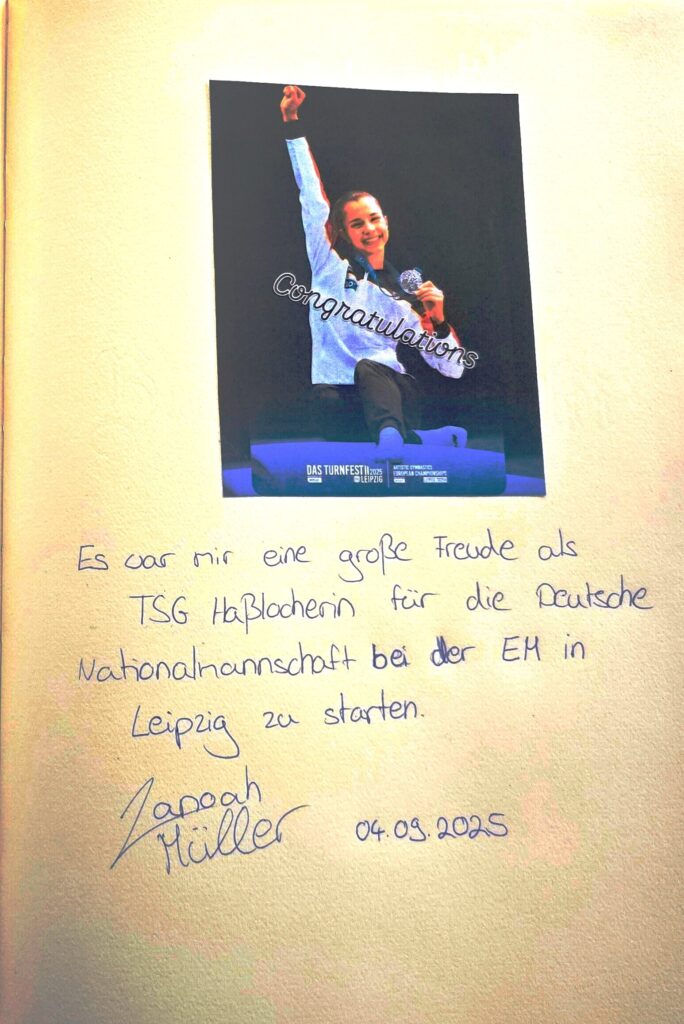 Congratulations
DAS TURNFEST 2025
LEIPZIG
ARTISTIC GYMNASTICS
EUROPEAN CHAMPIONSHIPS
Es war mir eine große Freude als
TSG Haßlocherin für die Deutsche
Nationalmannschaft bei der EM in
Leipzig zu starten.
Janoah
Müller
04.09.2025